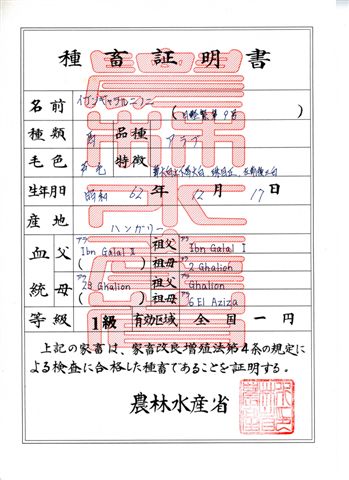 種畜証明書
名前 イブンギャラル
( 月 第9号 )
種類 馬 品種 アラブ
毛色 特徴
生年月日 昭和 62年 12月 17日
産地 ハンガリー
血統 父 アラブ Ibn Galal I 祖父 アラブ Ibn Galal I
( ) 祖母 アラブ 2 Ghalion
母 アラブ 23 Ghalion 祖父 アラブ Ghalion
( ) 祖母 アラブ 6 El Aziza
等級 1級 有効区域 全国一円
上記の家畜は、家畜改良増殖法第4条の規定に
よる検査に合格した種畜であることを証明する。
農林水産省